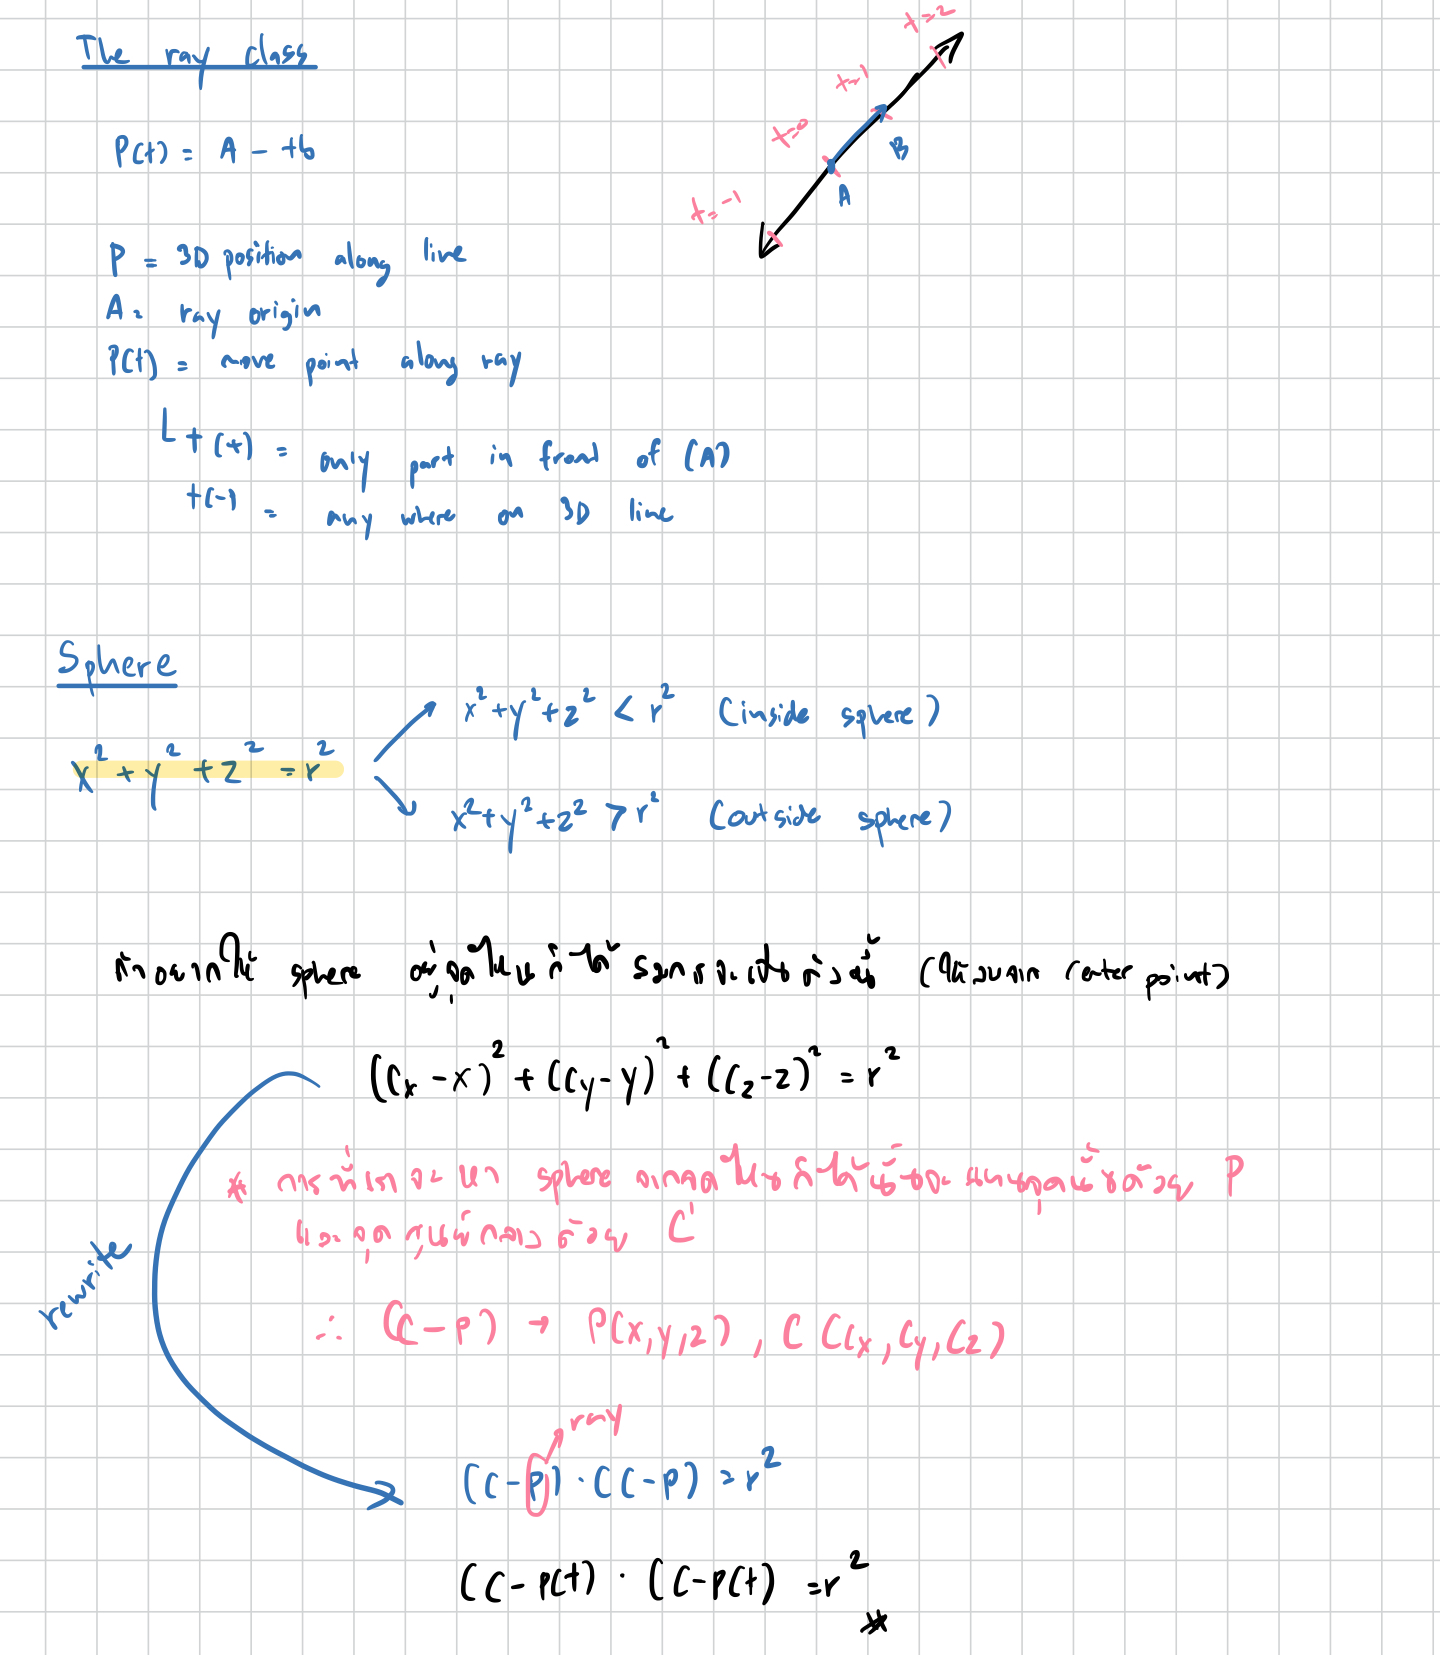 The ray class
P(t) = A - tb
t=2
t=1
t=0
t=-1
B
A
P = 3D position along line
A = ray origin
P(t) = move point along ray
t (+) = only part in front of (A)
t (-) = any where on 3D line
Sphere
x² + y² + z² = r²
x² + y² + z² < r² (inside sphere)
x² + y² + z² > r² (outside sphere)
ถ้าอยากให้ sphere อยู่จุดไหนก็ได้ สมการจะเป็นดังนี้ (center point)
(Cx - x)² + (Cy - y)² + (Cz - z)² = r²
* การที่เราจะหา sphere จากจุดไหนก็ได้นั้นจะแทนจุดนั้นด้วย P
และจุดศูนย์กลางด้วย C
rewrite
∴ (C - P) → P(x, y, z), C (Cx, Cy, Cz)
ray
(C - P) · (C - P) = r²
(C - P(t) · (C - P(t) = r²